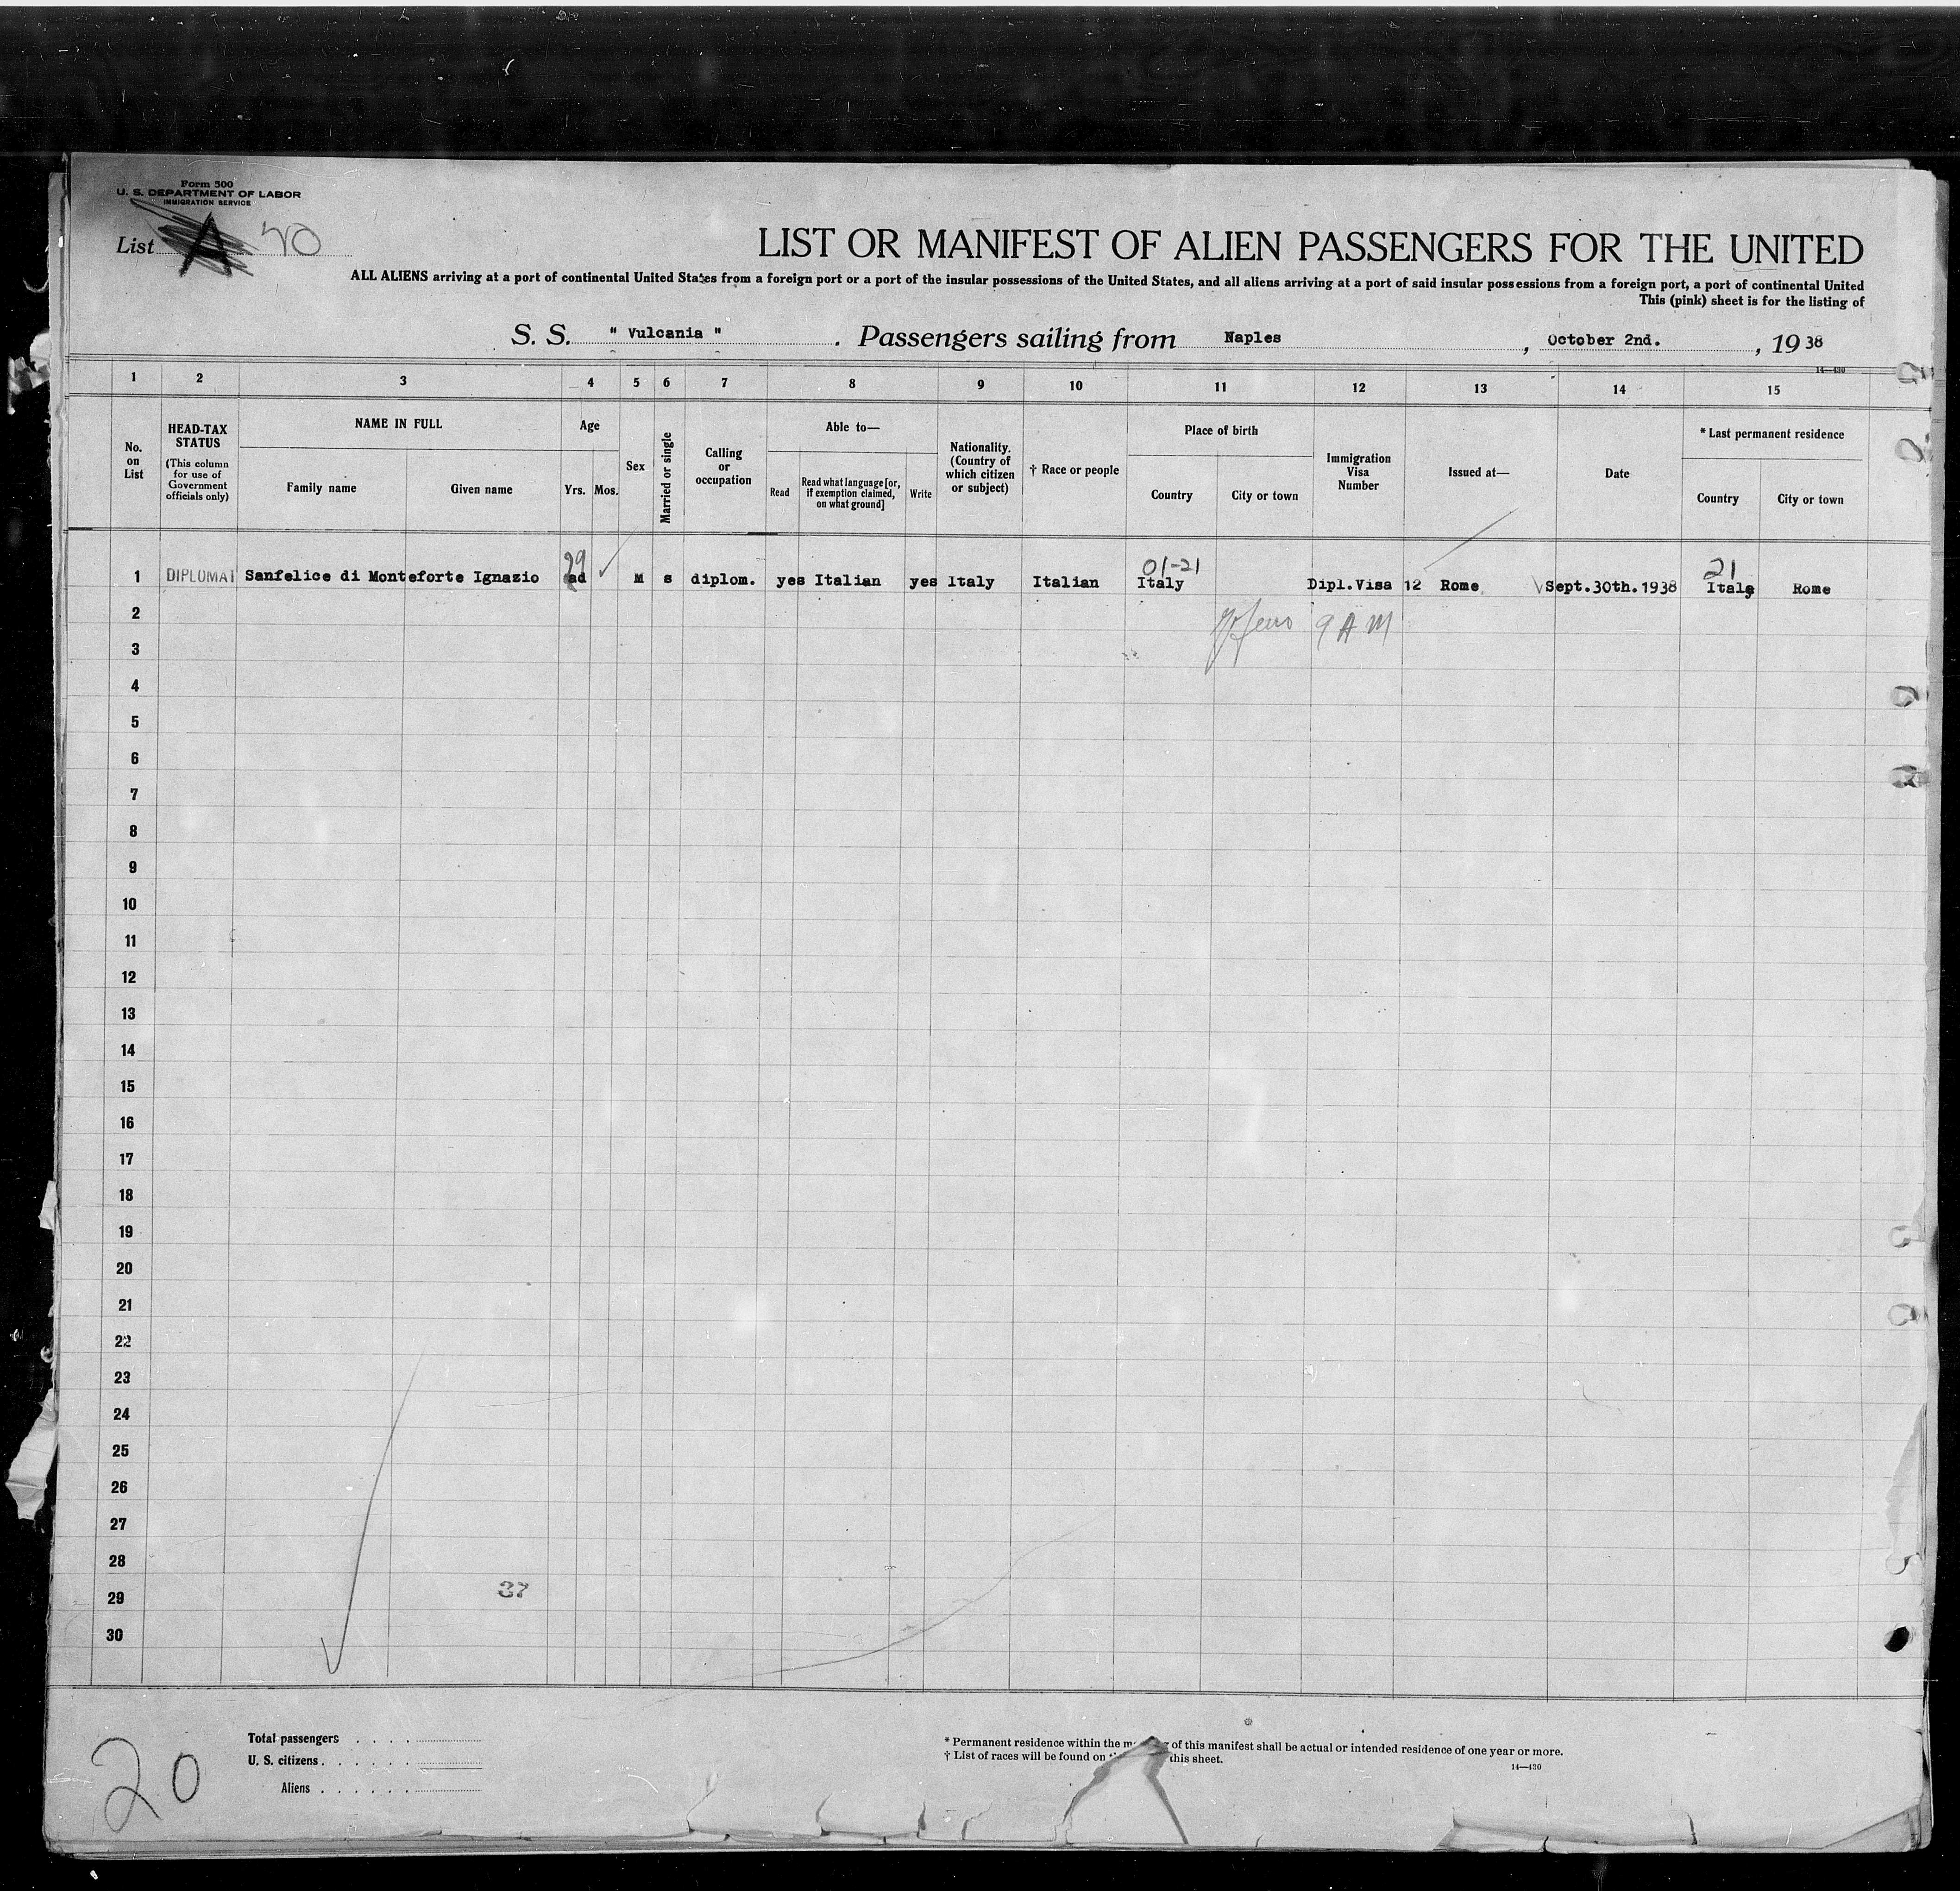 Form 500
U. S. DEPARTMENT OF LABOR
IMMIGRATION SERVICE
List A 20
LIST OR MANIFEST OF ALIEN PASSENGERS FOR THE UNITED
ALL ALIENS arriving at a port of continental United States from a foreign port or a port of the insular possessions of the United States, and all aliens arriving at a port of said insular possessions from a foreign port, a port of continental United
This (pink) sheet is for the listing of
S. S. " Vulcania " . Passengers sailing from Naples , October 2nd. , 19 38
14—430
1 2 3 4 5 6 7 8 9 10 11 12 13 14 15
No. on List
HEAD-TAX STATUS
(This column for use of Government officials only)
NAME IN FULL
Family name Given name
Age
Yrs. Mos.
Sex
Married or single
Calling or occupation
Able to—
Read
Read what language [or, if exemption claimed, on what ground]
Write
Nationality. (Country of which citizen or subject)
† Race or people
Place of birth
Country City or town
Immigration Visa Number
Issued at—
Date
* Last permanent residence
Country City or town
29 01-21 21
1 DIPLOMAT Sanfelice di Monteforte Ignazio ad M s diplom. yes Italian yes Italy Italian Italy Dipl.Visa 12 Rome Sept.30th.1938 Italy Rome
2 9 A M
3
4
5
6
7
8
9
10
11
12
13
14
15
16
17
18
19
20
21
22
23
24
25
26
27
28
29 37
30
20
Total passengers . . . .
U. S. citizens . . . . . .
Aliens . . . . . .
* Permanent residence within the of this manifest shall be actual or intended residence of one year or more.
† List of races will be found on this sheet.
14—430